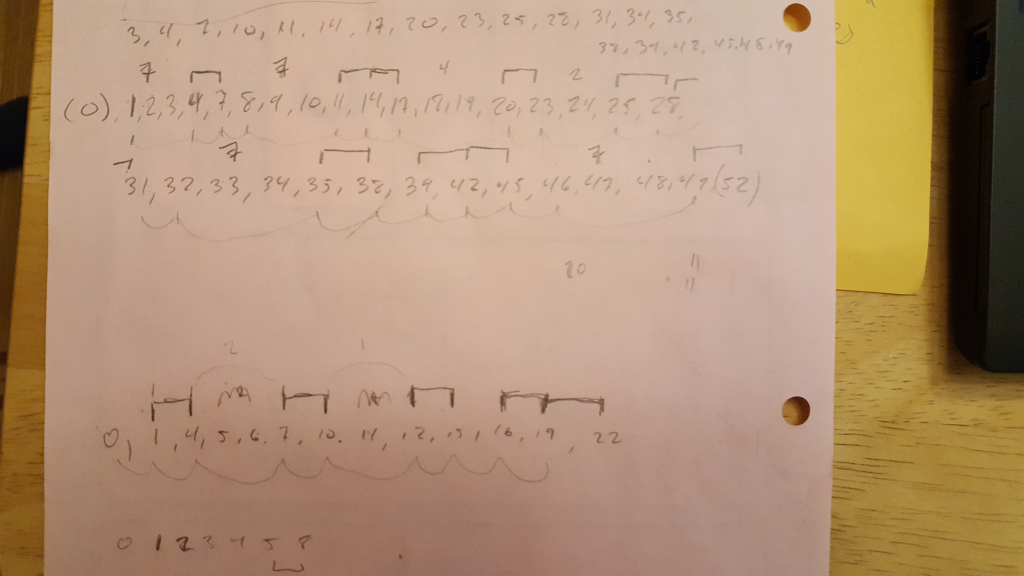 3, 4, 7, 10, 11, 14, 17, 20, 23, 25, 28, 31, 34, 35,
38, 39, 42, 45, 48, 49
7 7 4 2
(0), 1, 2, 3, 4, 7, 8, 9, 10, 11, 14, 17, 18, 19, 20, 23, 24, 25, 28,
7 7
31, 32, 33, 34, 35, 38, 39, 42, 45, 46, 47, 48, 49, (52)
10 11
11
2 1
NA NA
0, 1, 4, 5, 6, 7, 10, 11, 12, 15, 16, 19, 22
0 1 2 3 4 5 8